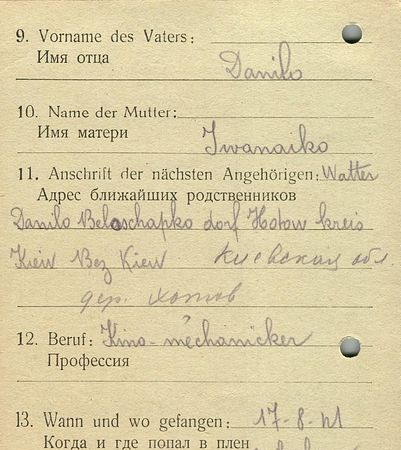 9. Vorname des Vaters:
Имя отца
Danilo
10. Name der Mutter:
Имя матери
Iwanaiko
11. Anschrift der nächsten Angehörigen: Watter
Адрес ближайших родственников
Danilo Beloschapko dorf Hotow kreis
Kiew Bez Kiew Киевская обл
дер. Хотов
12. Beruf: Kino-mechanicker
Профессия
13. Wann und wo gefangen: 17-8-41
Когда и где попал в плен